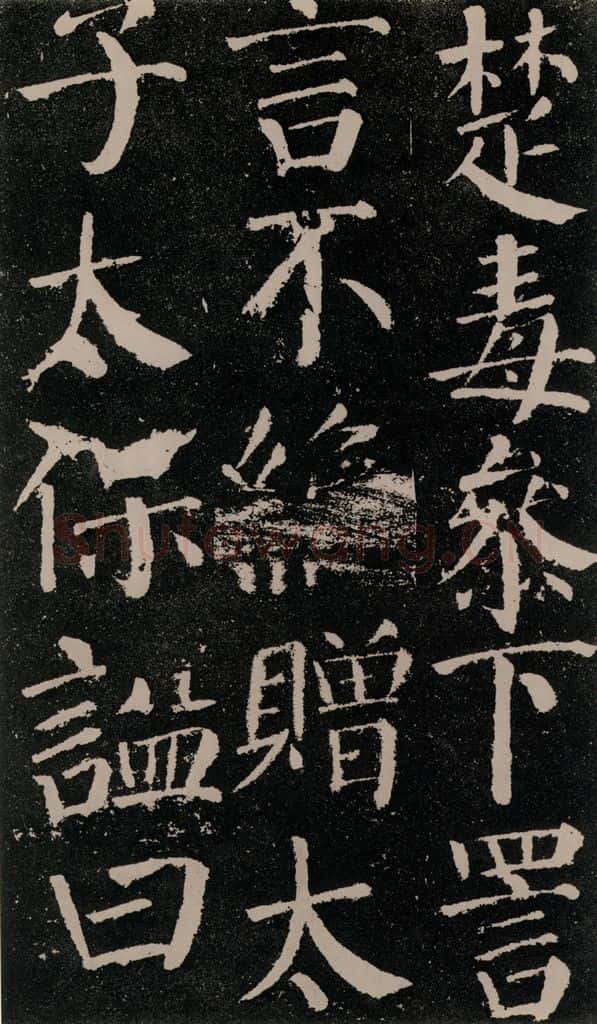 楚毒參下詈
言不絶贈太
子太保謚曰
Shufawang.CN